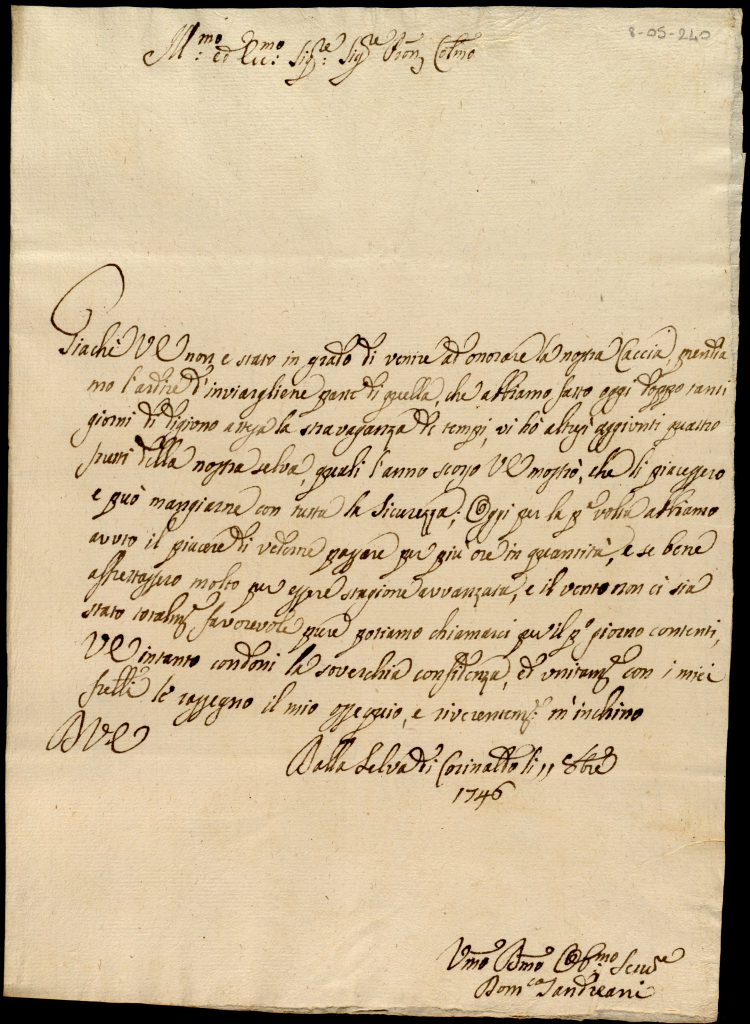 8-05-240
Ill.mo ed Ecc.mo Sig.re Sig.re Pron Colmo
Giachè VE non e stato in grado di venire ad onorare la nostra Caccia, prendia
mo l'ardire d'inviargliene parte di quella, che abbiamo fatto oggi doppo tanti
giorni di digiono attesa la stravaganza de tempi, vi hò altresi aggiunti quattro
frutti della nostra selva, quali l'anno scorso VE mostrò, che li piacessero
e può mangiarne con tutta la sicurezza; Oggi per la p.a volta abbiamo
avuto il piacere di vederne passare per più ore in quantità, e se bene
affrettassero molto per essere stagione avvanzata, e il vento non ci sia
stato totalm.e favorevole pure potiamo chiamarci per il p.o giorno contenti,
VE intanto condoni la soverchia confidenza, ed unitam.e con i miei
frelli le rassegno il mio ossequio, e riverentem.e m'inchino
D VE
Dalla Selva di Corinalto li 11 8bre
1746
Vmo Dmo Obb.mo Serv.re
Dom.co Sandreani